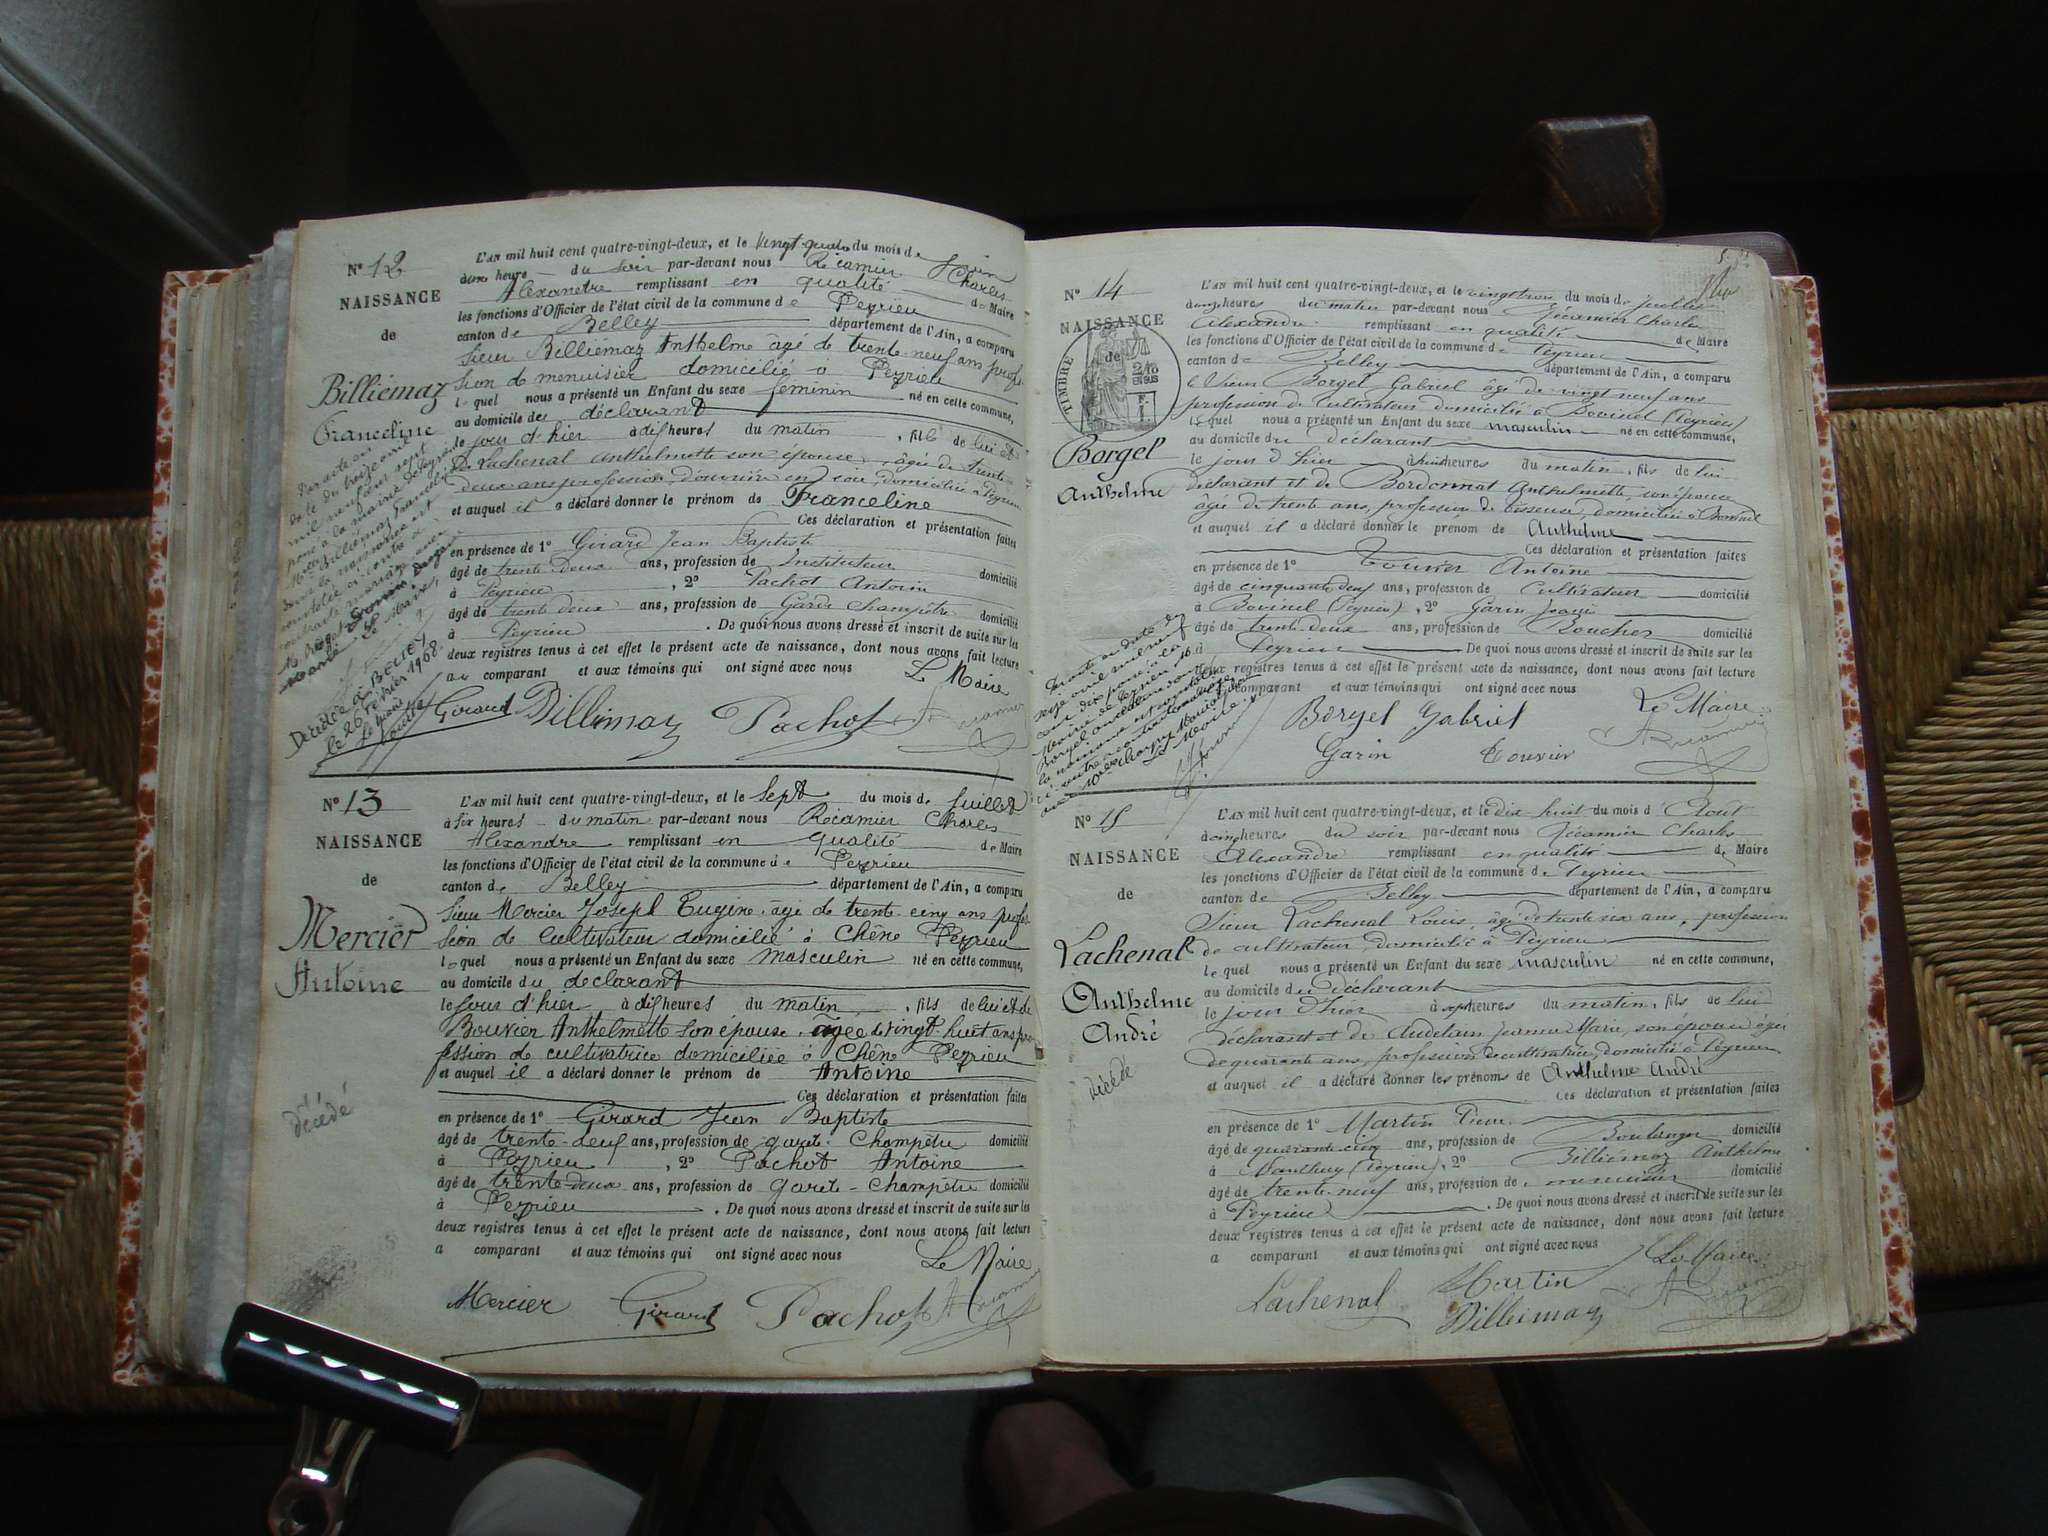 N° 12
NAISSANCE
de
Billiémaz
Franceline
L'AN mil huit cent quatre-vingt-deux, et le vingt quatre du mois de Juin
à onze heure du soir par-devant nous Récamier Charles
Alexandre remplissant en qualité de Maire
les fonctions d'Officier de l'état civil de la commune de Peyrieu
canton de Belley département de l'Ain, a comparu
Sieur Billiémaz Anthelme âgé de trente-neuf ans profes-
sion de menuisier domicilié à Peyrieu
lequel nous a présenté un Enfant du sexe féminin né en cette commune,
au domicile du déclarant
le jour d'hier à dix heures du matin, fille de lui et
de Lachenal Anthelmette son épouse, âgée de trente
deux ans profession d'ouvrière en soie, domiciliée à Peyrieu
et auquel il a déclaré donner le prénom de Franceline
Ces déclaration et présentation faites
en présence de 1° Girard Jean Baptiste
âgé de trente deux ans, profession de Instituteur domicilié
à Peyrieu, 2° Pachot Antoine
âgé de trente deux ans, profession de Garde Champêtre domicilié
à Peyrieu. De quoi nous avons dressé et inscrit de suite sur les
deux registres tenus à cet effet le présent acte de naissance, dont nous avons fait lecture
au comparant et aux témoins qui ont signé avec nous
Le Maire
Girard Billimaz Pachot A Récamier
Décédée à BELLEY
le 26 février 1968
N° 13
NAISSANCE
de
Mercier
Antoine
décédé
L'AN mil huit cent quatre-vingt-deux, et le sept du mois de Juillet
à six heures du matin par-devant nous Récamier Charles
Alexandre remplissant en qualité de Maire
les fonctions d'Officier de l'état civil de la commune de Peyrieu
canton de Belley département de l'Ain, a comparu
Sieur Mercier Joseph Eugine, âgé de trente cinq ans profes-
sion de cultivateur domicilié à Chêne Peyrieu
lequel nous a présenté un Enfant du sexe masculin né en cette commune,
au domicile du déclarant
le jour d'hier à dix heures du matin, fils de lui et de
Bouvier Anthelmette son épouse, âgée de vingt huit ans pro
fession de cultivatrice domiciliée à Chêne Peyrieu
et auquel il a déclaré donner le prénom de Antoine
Ces déclaration et présentation faites
en présence de 1° Girard Jean Baptiste
âgé de trente-deux ans, profession de garde Champêtre domicilié
à Peyrieu, 2° Pachot Antoine
âgé de trente-deux ans, profession de garde-champêtre domicilié
à Peyrieu. De quoi nous avons dressé et inscrit de suite sur les
deux registres tenus à cet effet le présent acte de naissance, dont nous avons fait lecture
a comparant et aux témoins qui ont signé avec nous
Le Maire
Mercier Girard Pachot A Récamier
N° 14
NAISSANCE
de
TIMBRE
Borgel
Anthelme
L'AN mil huit cent quatre-vingt-deux, et le vingt trois du mois de Juillet
à onze heures du matin par-devant nous Récamier Charles
Alexandre remplissant en qualité de Maire
les fonctions d'Officier de l'état civil de la commune de Peyrieu
canton de Belley département de l'Ain, a comparu
le Sieur Borgel Gabriel âgé de vingt neuf ans
profession de Cultivateur domicilié à Bovinel (Peyrieu)
lequel nous a présenté un Enfant du sexe masculin né en cette commune,
au domicile du déclarant
le jour d'hier à huit heures du matin, fils de lui
déclarant et de Bordonnat Anthelmette, son épouse
âgée de trente ans, profession de tisseuse, domiciliée à Bovinel
et auquel il a déclaré donner le prénom de Anthelme
Ces déclaration et présentation faites
en présence de 1° Touvier Antoine
âgé de cinquante deux ans, profession de Cultivateur domicilié
à Bovinel (Peyrieu), 2° Garin Joanis
âgé de trente-deux ans, profession de Boucher domicilié
à Peyrieu De quoi nous avons dressé et inscrit de suite sur les
deux registres tenus à cet effet le présent acte de naissance, dont nous avons fait lecture
comparant et aux témoins qui ont signé avec nous
Le Maire
Borgel Gabriel
Garin Touvier A Récamier
N° 15
NAISSANCE
de
Lachenal
Anthelme
André
décédé
L'AN mil huit cent quatre-vingt-deux, et le dix huit du mois d'Aout
à cinq heures du soir par-devant nous Récamier Charles
Alexandre remplissant en qualité de Maire
les fonctions d'Officier de l'état civil de la commune de Peyrieu
canton de Belley département de l'Ain, a comparu
Sieur Lachenal Louis, âgé de trente six ans, profession
de cultivateur, domicilié à Peyrieu
lequel nous a présenté un Enfant du sexe masculin né en cette commune,
au domicile du déclarant
le jour d'hier à sept heures du matin, fils de lui
déclarant et de Jeanne Marie, son épouse âgée
de quarante ans, profession de cultivatrice, domiciliée à Peyrieu
et auquel il a déclaré donner les prénoms de Anthelme André
Ces déclaration et présentation faites
en présence de 1° Martin Pierre
âgé de quarante cinq ans, profession de Boulanger domicilié
à Nanthuy (Peyrieu), 2° Billiémaz Anthelme
âgé de trente-neuf ans, profession de menuisier domicilié
à Peyrieu. De quoi nous avons dressé et inscrit de suite sur les
deux registres tenus à cet effet le présent acte de naissance, dont nous avons fait lecture
a comparant et aux témoins qui ont signé avec nous
Le Maire
Lachenal Martin
Billiémaz A Récamier